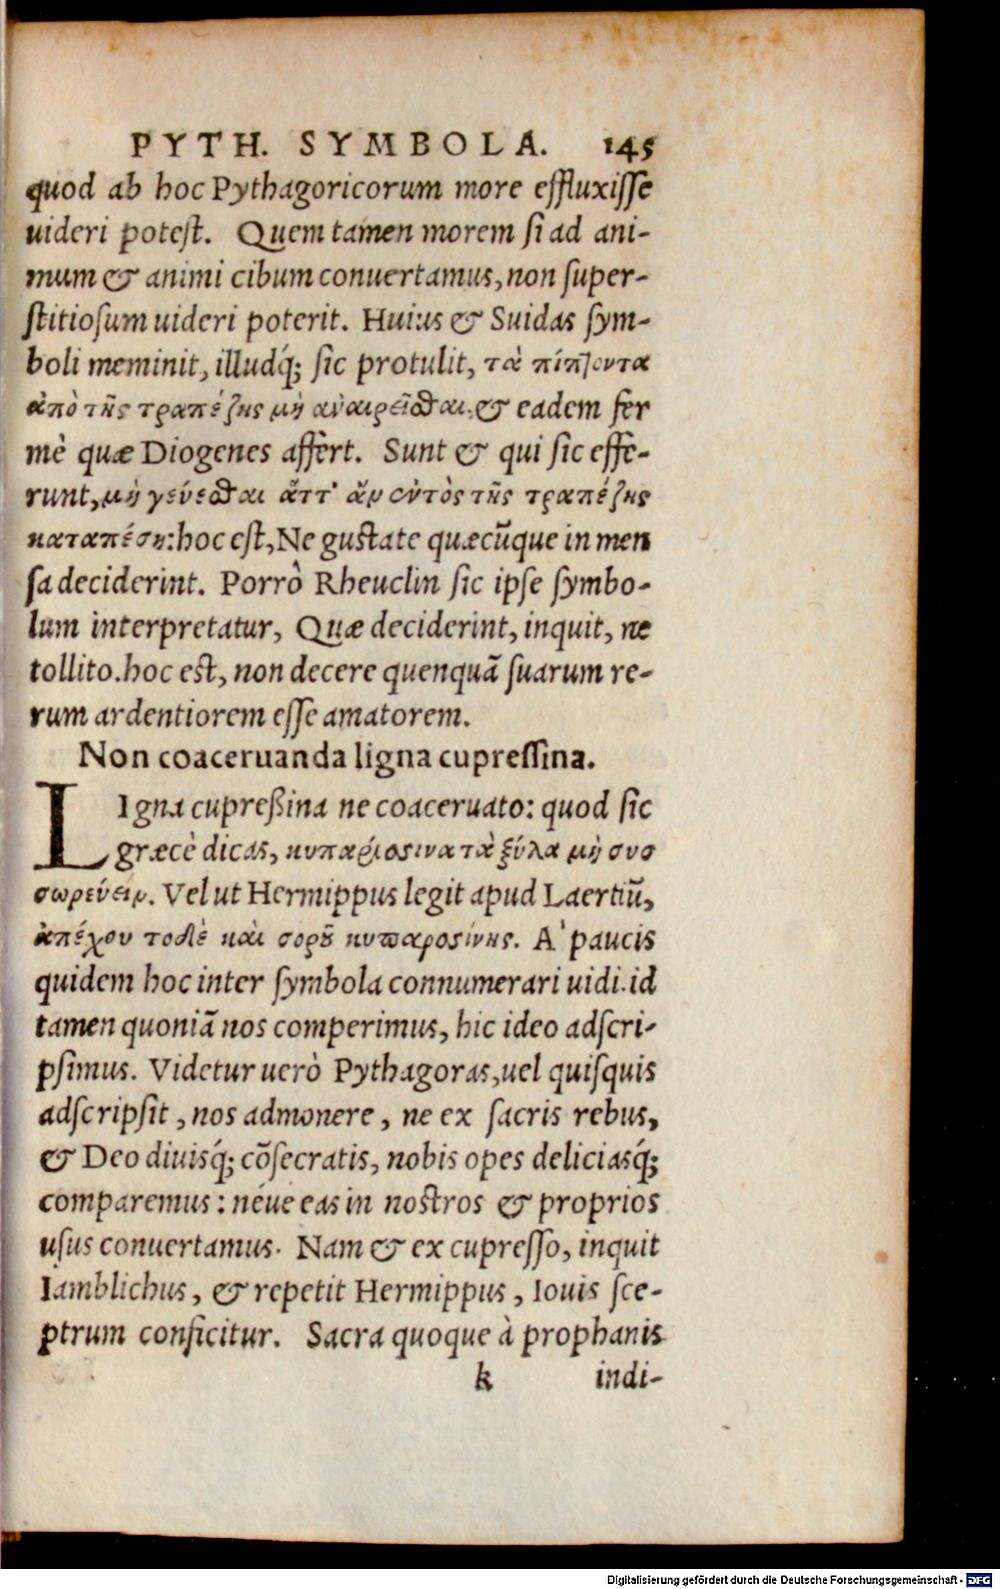 PYTH. SYMBOLA. 145
quod ab hoc Pythagoricorum more effluxiſſe
uideri poteſt. Quem tamen morem ſi ad ani-
mum & animi cibum conuertamus, non ſuper-
ſtitioſum uideri poterit. Huius & Suidas ſym-
boli meminit, illudq́; ſic protulit, τὰ πίπτοντα
ἀπὸ τῆς τραπέζης μὴ ἀναιρεῖσθαι. & eadem fer
mè quæ Diogenes affert. Sunt & qui ſic effe-
runt, μὴ γεύεσθαι ἅττ' ἂν ἐντὸς τῆς τραπέζης
καταπέσῃ: hoc eſt, Ne guſtate quæcũque in men
ſa deciderint. Porrò Rheuclin ſic ipſe ſymbo-
lum interpretatur, Quæ deciderint, inquit, ne
tollito. hoc eſt, non decere quenquã ſuarum re-
rum ardentiorem eſſe amatorem.
Non coaceruanda ligna cupreſſina.
LIgna cupreßina ne coaceruato: quod ſic
græcè dicas, κυπαρίσσινα τὰ ξύλα μὴ συσ
σωρεύειν. Vel ut Hermippus legit apud Laertiũ,
ἀπέχου τοδὲ καὶ σοροῦ κυπαροσίνης. A' paucis
quidem hoc inter ſymbola connumerari uidi. id
tamen quoniã nos comperimus, hic ideo adſcri-
pſimus. Videtur uerò Pythagoras, uel quiſquis
adſcripſit, nos admonere, ne ex ſacris rebus,
& Deo diuisq́; cõſecratis, nobis opes deliciasq́;
comparemus: néue eas in noſtros & proprios
uſus conuertamus. Nam & ex cupreſſo, inquit
Iamblichus, & repetit Hermippus, Iouis ſce-
ptrum conficitur. Sacra quoque à prophanis
k indi-
Digitalisierung gefördert durch die Deutsche Forschungsgemeinschaft - DFG